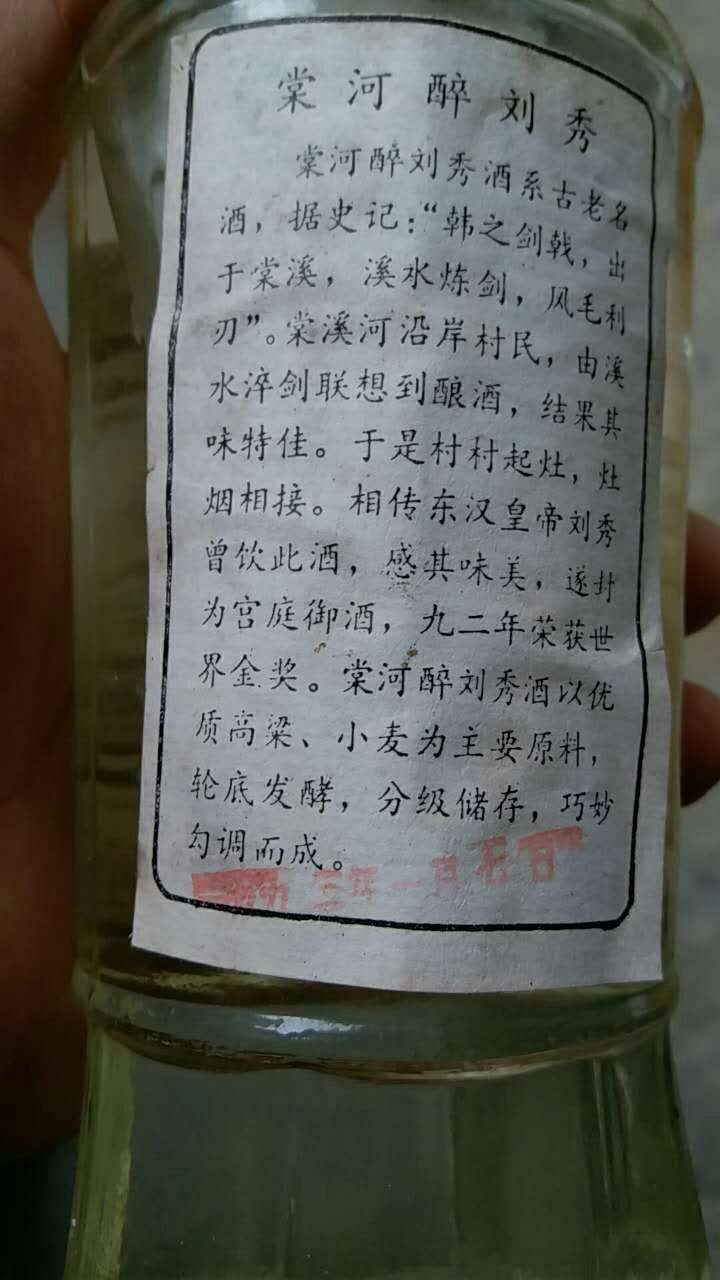 棠河醉刘秀
棠河醉刘秀酒系古老名
酒，据史记：“韩之剑戟，出
于棠溪，溪水炼剑，风毛利
刃”。棠溪河沿岸村民，由溪
水淬剑联想到酿酒，结果其
味特佳。于是村村起灶，灶
烟相接。相传东汉皇帝刘秀
曾饮此酒，感其味美，遂封
为宫庭御酒，九二年荣获世
界金奖。棠河醉刘秀酒以优
质高粱、小麦为主要原料，
轮底发酵，分级储存，巧妙
勾调而成。
三年一月 日